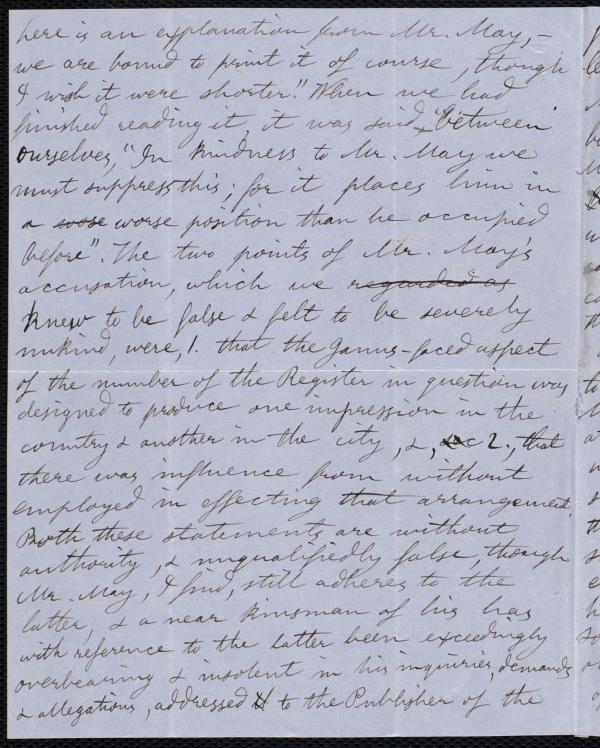 here is an explanation from Mr. May, –
we are bound to print it of course, though
I wish it were shorter." When we had
finished reading it, it was said, "between
ourselves," "In kindness to Mr. May we
must suppress this; for it places him in
a wose worse position than he occupied
before". The two points of Mr. May's
accusation, which we regarded as
knew to be false & felt to be severely
unkind, were, 1. that the Janus-faced aspect
of the number of the Register in question was
designed to produce one impression in the
country & another in the city, &, 2., that
there was influence from without
employed in effecting that arrangement.
Both these statements are without
authority, & unqualifiedly false, though
Mr. May, I find, still adheres to the
latter, & a near kinsman of his has
with reference to the latter been exceedingly
overbearing & insolent in his inquiries, demands
& allegations, addressed to the Publisher of the